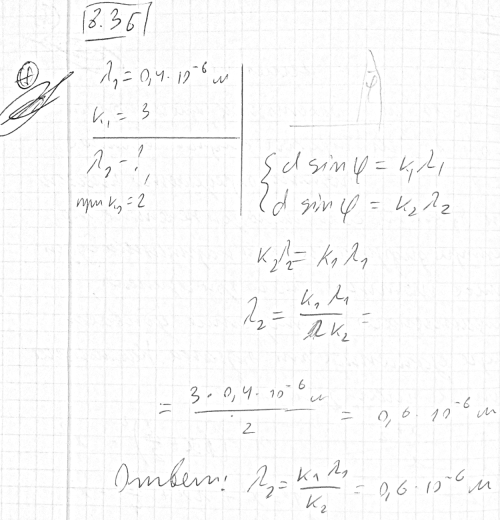 8.36
λ₁ = 0,4·10⁻⁶ м
k₁ = 3
λ₂ - ?,
при k₂ = 2
φ
{ d sin φ = k₁ λ₁
{ d sin φ = k₂ λ₂
k₂ λ₂ = k₁ λ₁
λ₂ = k₁ λ₁ / k₂ =
= 3 · 0,4 · 10⁻⁶ м / 2 = 0,6 · 10⁻⁶ м
Ответ: λ₂ = k₁ λ₁ / k₂ = 0,6 · 10⁻⁶ м